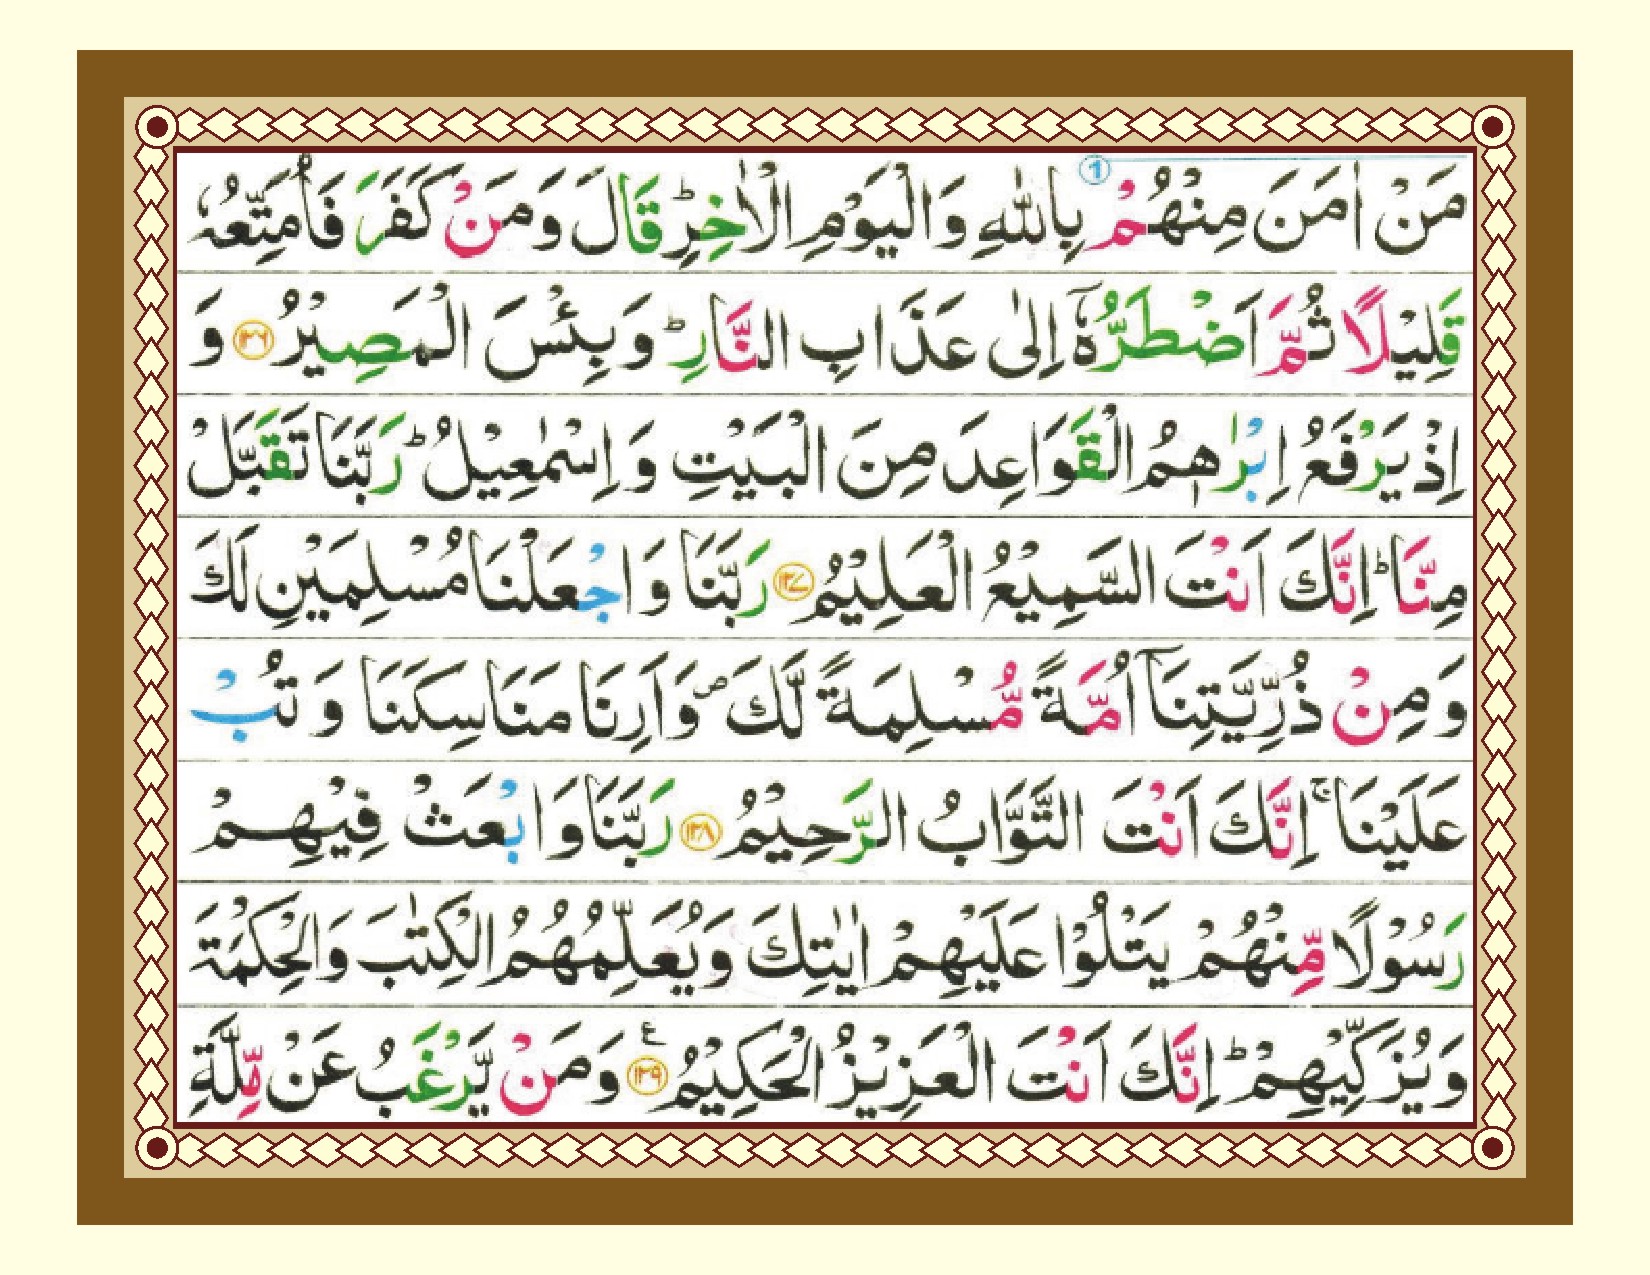 مَنْ اٰمَنَ مِنْهُمْ ① بِاللّٰهِ وَالْيَوْمِ الْاٰخِرِ ؕ قَالَ وَمَنْ كَفَرَ فَاُمَتِّعُهٗ
قَلِيْلًا ثُمَّ اَضْطَرُّهٗۤ اِلٰى عَذَابِ النَّارِ ؕ وَبِئْسَ الْمَصِيْرُ ۝۱۲۶ وَ
اِذْ يَرْفَعُ اِبْرٰهٖمُ الْقَوَاعِدَ مِنَ الْبَيْتِ وَ اِسْمٰعِيْلُ ؕ رَبَّنَا تَقَبَّلْ
مِنَّا ؕ اِنَّكَ اَنْتَ السَّمِيْعُ الْعَلِيْمُ ۝۱۲۷ رَبَّنَا وَ اجْعَلْنَا مُسْلِمَيْنِ لَكَ
وَ مِنْ ذُرِّيَّتِنَاۤ اُمَّةً مُّسْلِمَةً لَّكَ ۪ وَ اَرِنَا مَنَاسِكَنَا وَ تُبْ
عَلَيْنَا ۚ اِنَّكَ اَنْتَ التَّوَّابُ الرَّحِيْمُ ۝۱۲۸ رَبَّنَا وَ ابْعَثْ فِيْهِمْ
رَسُوْلًا مِّنْهُمْ يَتْلُوْا عَلَيْهِمْ اٰيٰتِكَ وَيُعَلِّمُهُمُ الْكِتٰبَ وَالْحِكْمَةَ
وَ يُزَكِّيْهِمْ ؕ اِنَّكَ اَنْتَ الْعَزِيْزُ الْحَكِيْمُ ۝۱۲۹ ع وَمَنْ يَّرْغَبُ عَنْ مِّلَّةِ